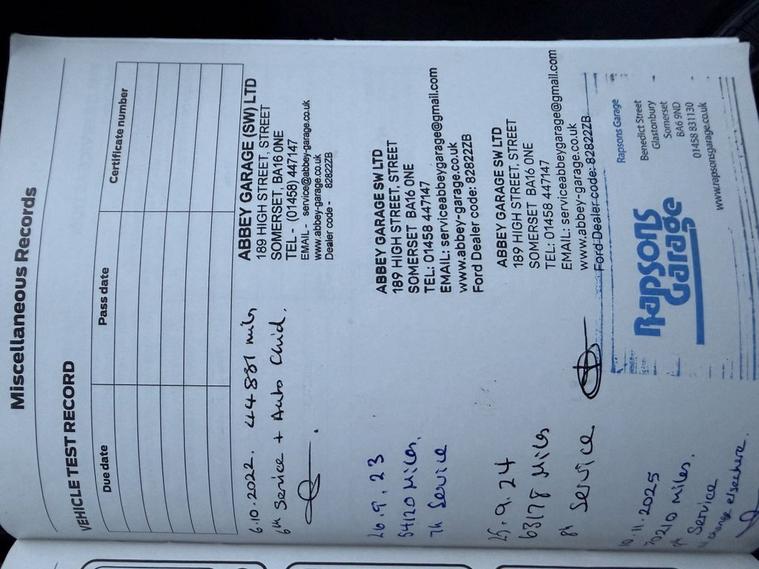 Miscellaneous Records
VEHICLE TEST RECORD
Due date
Pass date
Certificate number
6.10.2022. 44831 miles
6th Service + Auto
ABBEY GARAGE (SW) LTD
189 HIGH STREET, STREET
SOMERSET, BA16 0NE
TEL - (01458) 447147
EMAIL - service@abbey-garage.co.uk
www.abbey-garage.co.uk
Dealer code - 82822ZB
26.9.23
54120 Miles.
7th Service
ABBEY GARAGE SW LTD
189 HIGH STREET, STREET
SOMERSET BA16 ONE
TEL: 01458 447147
EMAIL: serviceabbeygarage@gmail.com
www.abbey-garage.co.uk
Ford Dealer code: 82822ZB
25.9.24
63178 Miles
8th Service
ABBEY GARAGE SW LTD
189 HIGH STREET, STREET
SOMERSET BA16 ONE
TEL: 01458 447147
EMAIL: serviceabbeygarage@gmail.com
www.abbey-garage.co.uk
Ford Dealer code: 82822ZB
10.11.2025
70210 miles.
Service
change elsewhere.
Rapsons
Garage
Rapsons Garage
Benedict Street
Glastonbury
Somerset
BA6 9ND
01458 831130
www.rapsonsgarage.co.uk